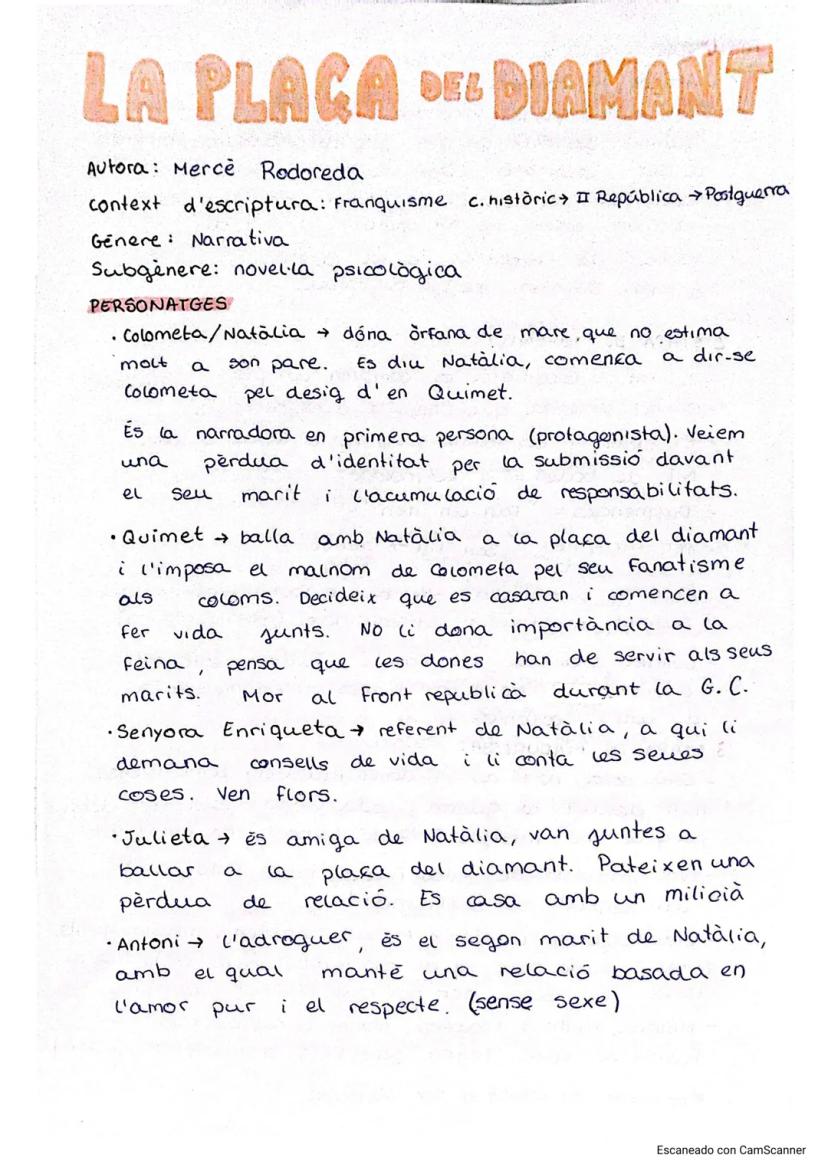 LA PLAÇA DEL DIAMANT
Autora: Mercè Rodoreda
Context d'escriptura: Franquisme c. històric → II República → Postguerra
Gènere: Narrativa
Subgènere: novel·la psicològica
PERSONATGES
· Colometa/Natàlia → dóna òrfana de mare que no estima
molt a son pare. Es diu Natàlia, comença a dir-se
Colometa pel desig d'en Quimet.
És la narradora en primera persona (protagonista). Veiem
una pèrdua d'identitat per la submissió davant
el seu marit i l'acumulació de responsabilitats.
· Quimet → balla amb Natàlia a la plaça del diamant
i l'imposa el malnom de Colometa pel seu Fanatisme
als coloms. Decideix que es casaran i comencen a
fer vida junts. No li dona importància a la
feina, pensa que les dones han de servir als seus
marits. Mor al Front republicà durant la G. C.
· Senyora Enriqueta → referent de Natàlia, a qui li
demana consells de vida i li conta les seues
coses. Ven flors.
· Julieta → és amiga de Natàlia, van juntes a
ballar a la plaça del diamant. Pateixen una
pèrdua de relació. Es casa amb un milicià
· Antoni → l'adroguer, és el segon marit de Natàlia,
amb el qual manté una relació basada en
l'amor pur i el respecte. (sense sexe)
Escaneado con CamScanner